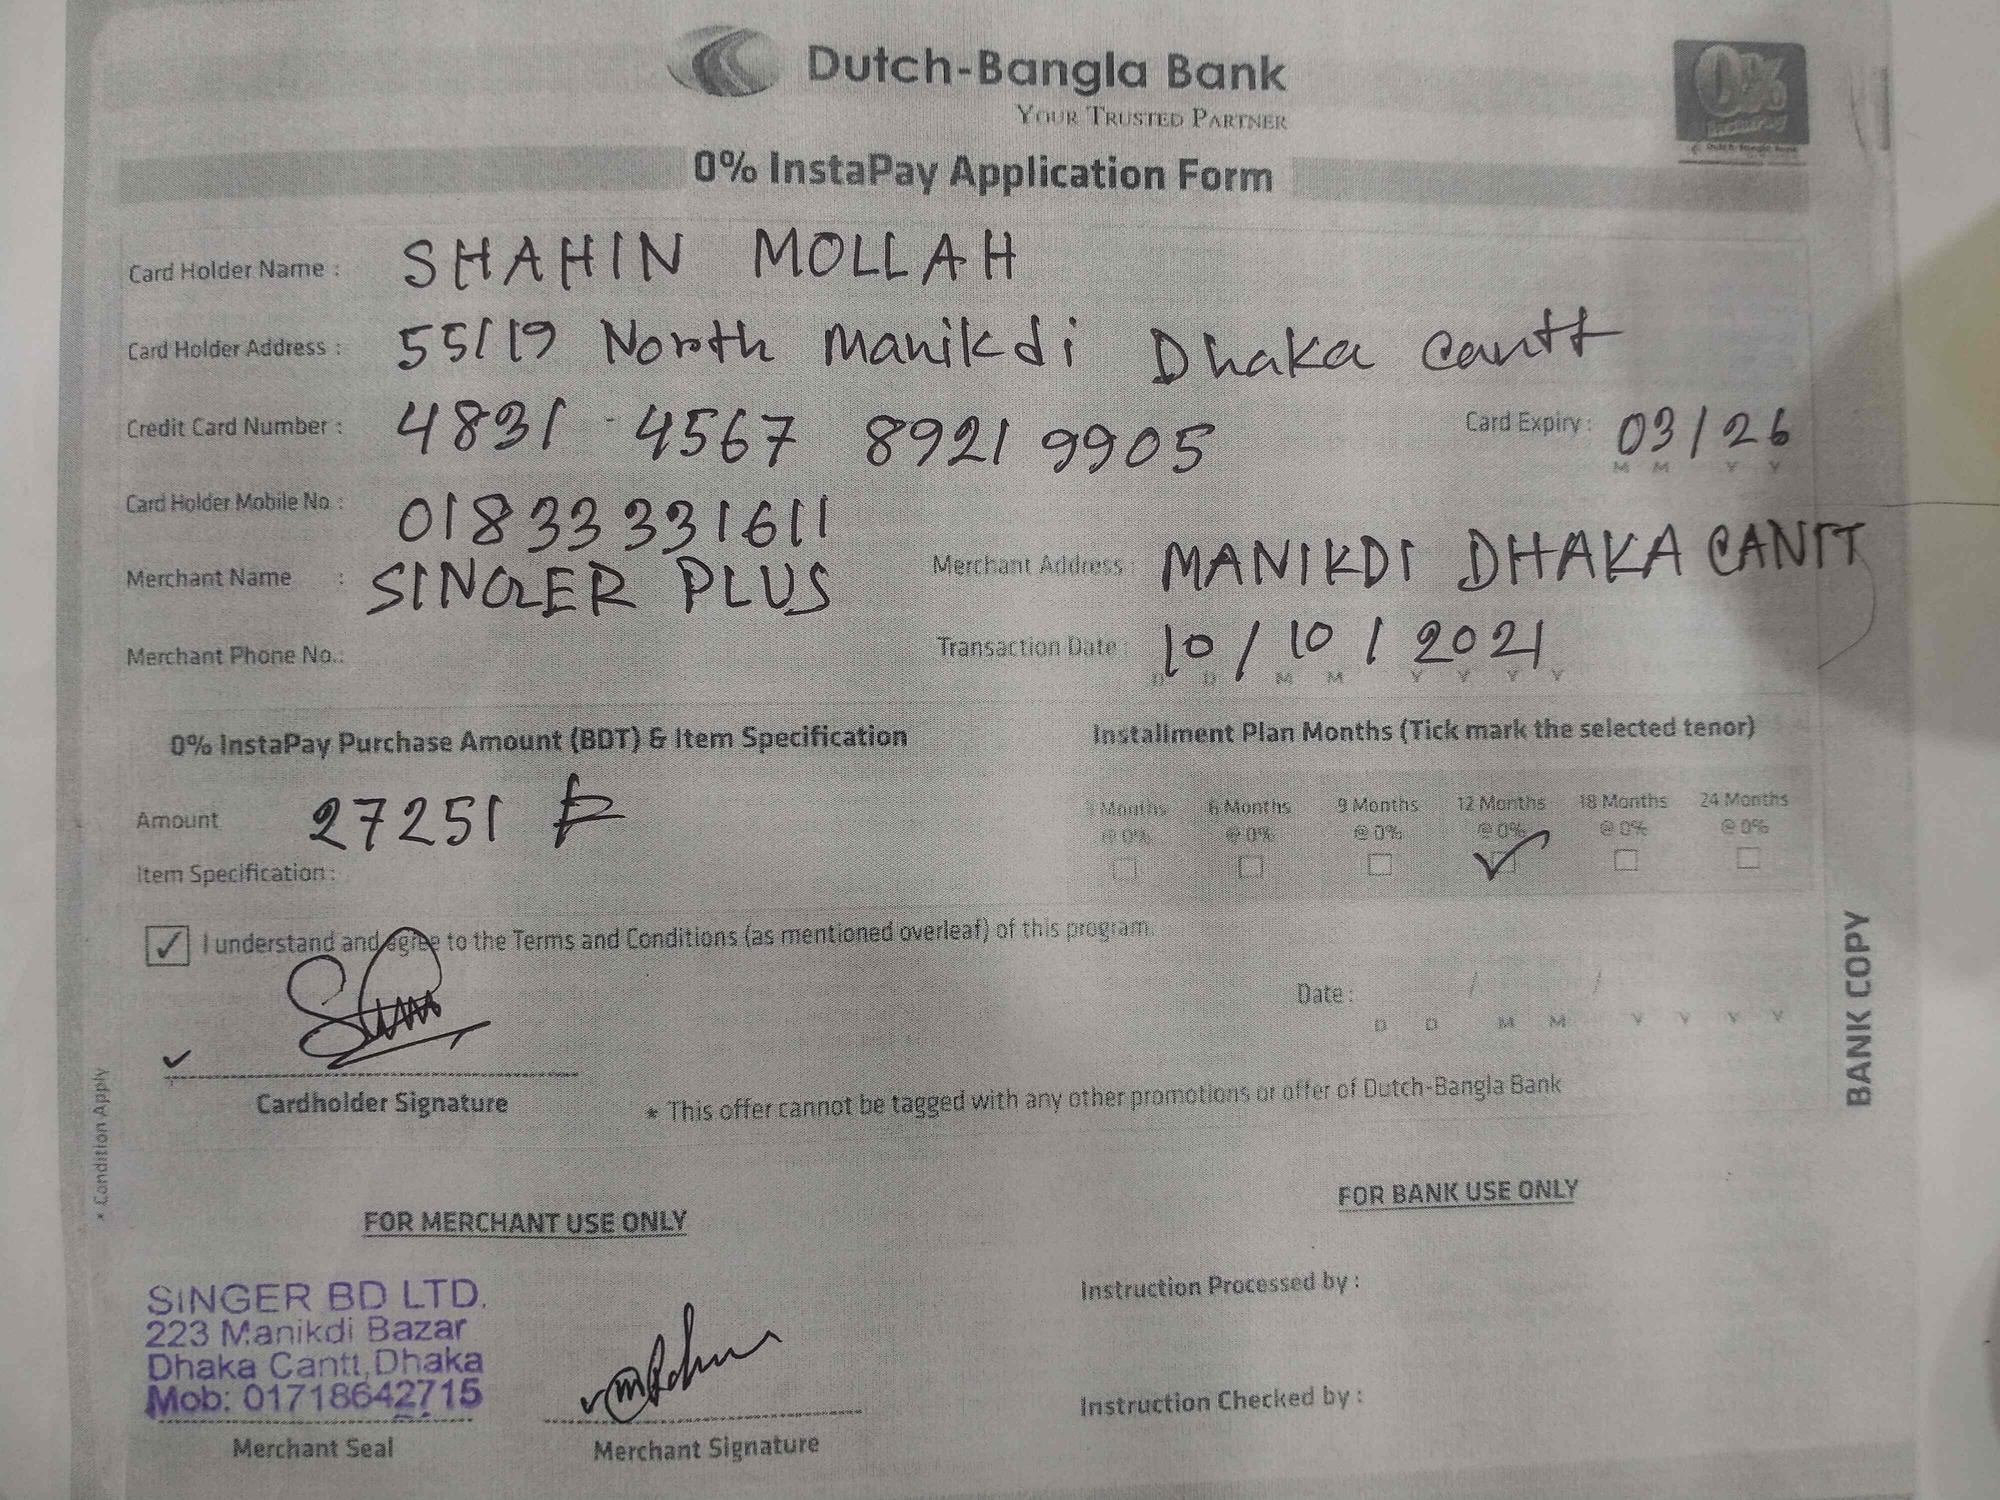 Dutch-Bangla Bank
YOUR TRUSTED PARTNER
0%
Dutch-Bangla Bank
0% InstaPay Application Form
Card Holder Name : SHAHIN MOLLAH
Card Holder Address : 55/19 North Manikdi Dhaka Cantt
Credit Card Number : 4831 4567 8921 9905 Card Expiry : 03/26
M M Y Y
Card Holder Mobile No : 01833331611
Merchant Name : SINGER PLUS Merchant Address : MANIKDI DHAKA CANTT
Merchant Phone No.: Transaction Date : 10/10/2021
D D M M Y Y Y Y
0% InstaPay Purchase Amount (BDT) & Item Specification
Installment Plan Months (Tick mark the selected tenor)
Amount 27251
Months 6 Months 9 Months 12 Months 18 Months 24 Months
@ 0% @ 0% @ 0% @ 0% @ 0% @ 0%
Item Specification :
I understand and agree to the Terms and Conditions (as mentioned overleaf) of this program.
Date : / /
D D M M Y Y Y Y
Cardholder Signature
* This offer cannot be tagged with any other promotions or offer of Dutch-Bangla Bank
* Condition Apply
BANK COPY
FOR MERCHANT USE ONLY
FOR BANK USE ONLY
SINGER BD LTD.
223 Manikdi Bazar
Dhaka Cantt, Dhaka
Mob: 01718642715
Merchant Seal
Merchant Signature
Instruction Processed by :
Instruction Checked by :